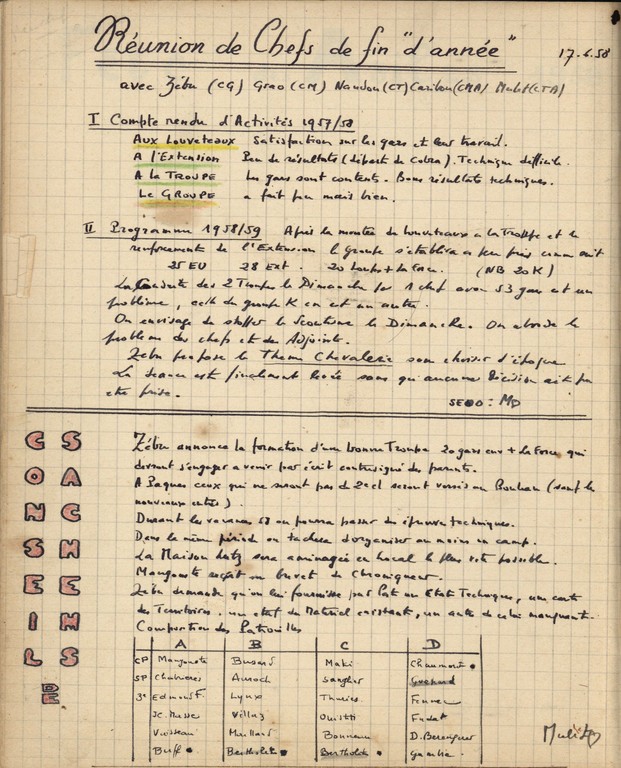 Réunion de Chefs de fin "d'année" 17.6.58
avec Zébu (CG) Grao (CM) Nandou (CT) Caribou (CMA) Mulot (CTA)
I Compte rendu d'Activités 1957/58
Aux Louveteaux Satisfaction sur les gars et leur travail.
A l'Extension Peu de résultats (départ de Cobra). Technique difficile.
A la TROUPE Les gars sont contents. Bons résultats techniques.
Le GROUPE a fait peu mais bien.
II Programme 1958/59 Après la montée de louveteaux a la Troupe et le
renforcement de l'Extension le groupe s'établira a peu près comme suit
25 EU 28 Ext. 20 Louvts + La Force. (NB 20 K)
La Conduite des 2 Troupes le Dimanche par 1 chef avec 53 gars est un
problème, celle du groupe K en est un autre.
On envisage de stopper le Scoutisme le Dimanche. On aborde le
problème des chefs et des Adjoints.
Zébu propose le Thème Chevalerie sans choisir d'époque
La séance est finalement levée sans qu'aucune Décision ait pu
etre prise.
CONSEILS DE SACHEMS
Zébu annonce la formation d'une bonne Troupe 20 gars env + La Force qui
devront s'engager a venir par écrit contresigné des parents.
A Paques ceux qui ne seront pas de 2e cl seront versés au (sauf les
nouveaux entrés).
Durant les vacances 58 on pourra passer des épreuves techniques.
Dans la même période on tachera d'organiser au moins un camp.
La Maison sera aménagée en local le plus vite possible.
Mangouste reçoit un buvet de Chroniqueur.
Zébu demande qu'on lui fournisse par Pat un Etat Technique, une carte
des Territoires. un etat du Matériel existant, un autre de celui manquant.
Composition des Patrouilles
A B C D
CP Mangouste Busard Maki Chaumont
SP Chabrières Auroch Sanglier Guépard
3e Edmond F. Lynx Thuries Fennec
JC. Masse Villaz Ouistiti Fudat
Voisseau Maillard Bonneau D. Berenguer
Buff Bertholet Bertholet Gambie
Mulot